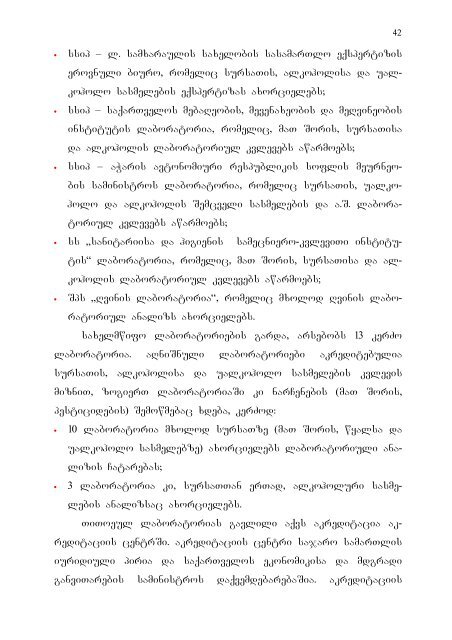 42
• სსიპ – ლ. სამხარაულის სახელობის სასამართლო ექსპერტიზის
ეროვნული ბიურო, რომელიც სურსათის, ალკოჰოლისა და უალ-
კოჰოლო სასმელების ექსპერტიზას ახორციელებს;
• სსიპ – საქართველოს მებაღეობის, მევენახეობის და მეღვინეობის
ინსტიტუტის ლაბორატორია, რომელიც, მათ შორის, სურსათისა
და ალკოჰოლის ლაბორატორიულ კვლევებს აწარმოებს;
• სსიპ – აჭარის ავტონომიური რესპუბლიკის სოფლის მეურნეო-
ბის სამინისტროს ლაბორატორია, რომელიც სურსათის, უალკო-
ჰოლო და ალკოჰოლის შემცველი სასმელების და ა.შ. ლაბორა-
ტორიულ კვლევებს აწარმოებს;
• სს „სანიტარიისა და ჰიგიენის სამეცნიერო-კვლევითი ინსტიტუ-
ტის“ ლაბორატორია, რომელიც, მათ შორის, სურსათისა და ალ-
კოჰოლის ლაბორატორიულ კვლევებს აწარმოებს;
• შპს „ღვინის ლაბორატორია“, რომელიც მხოლოდ ღვინის ლაბო-
რატორიულ ანალიზს ახორციელებს.
სახელმწიფო ლაბორატორიების გარდა, არსებობს 13 კერძო
ლაბორატორია. აღნიშნული ლაბორატორიები აკრედიტებულია
სურსათის, ალკოჰოლისა და უალკოჰოლო სასმელების კვლევის
მიზნით, ზოგიერთ ლაბორატორიაში კი ნარჩენების (მათ შორის,
პესტიციდების) შემოწმებაც ხდება, კერძოდ:
• 10 ლაბორატორია მხოლოდ სურსათზე (მათ შორის, წყალსა და
უალკოჰოლო სასმელებზე) ახორციელებს ლაბორატორიული ანა-
ლიზის ჩატარებას;
• 3 ლაბორატორია კი, სურსათთან ერთად, ალკოჰოლური სასმე-
ლების ანალიზსაც ახორციელებს.
თითოეულ ლაბორატორიას გავლილი აქვს აკრედიტაცია აკ-
რედიტაციის ცენტრში. აკრედიტაციის ცენტრი საჯარო სამართლის
იურიდიული პირია და საქართველოს ეკონომიკისა და მდგრადი
განვითარების სამინისტროს დაქვემდებარებაშია. აკრედიტაციის